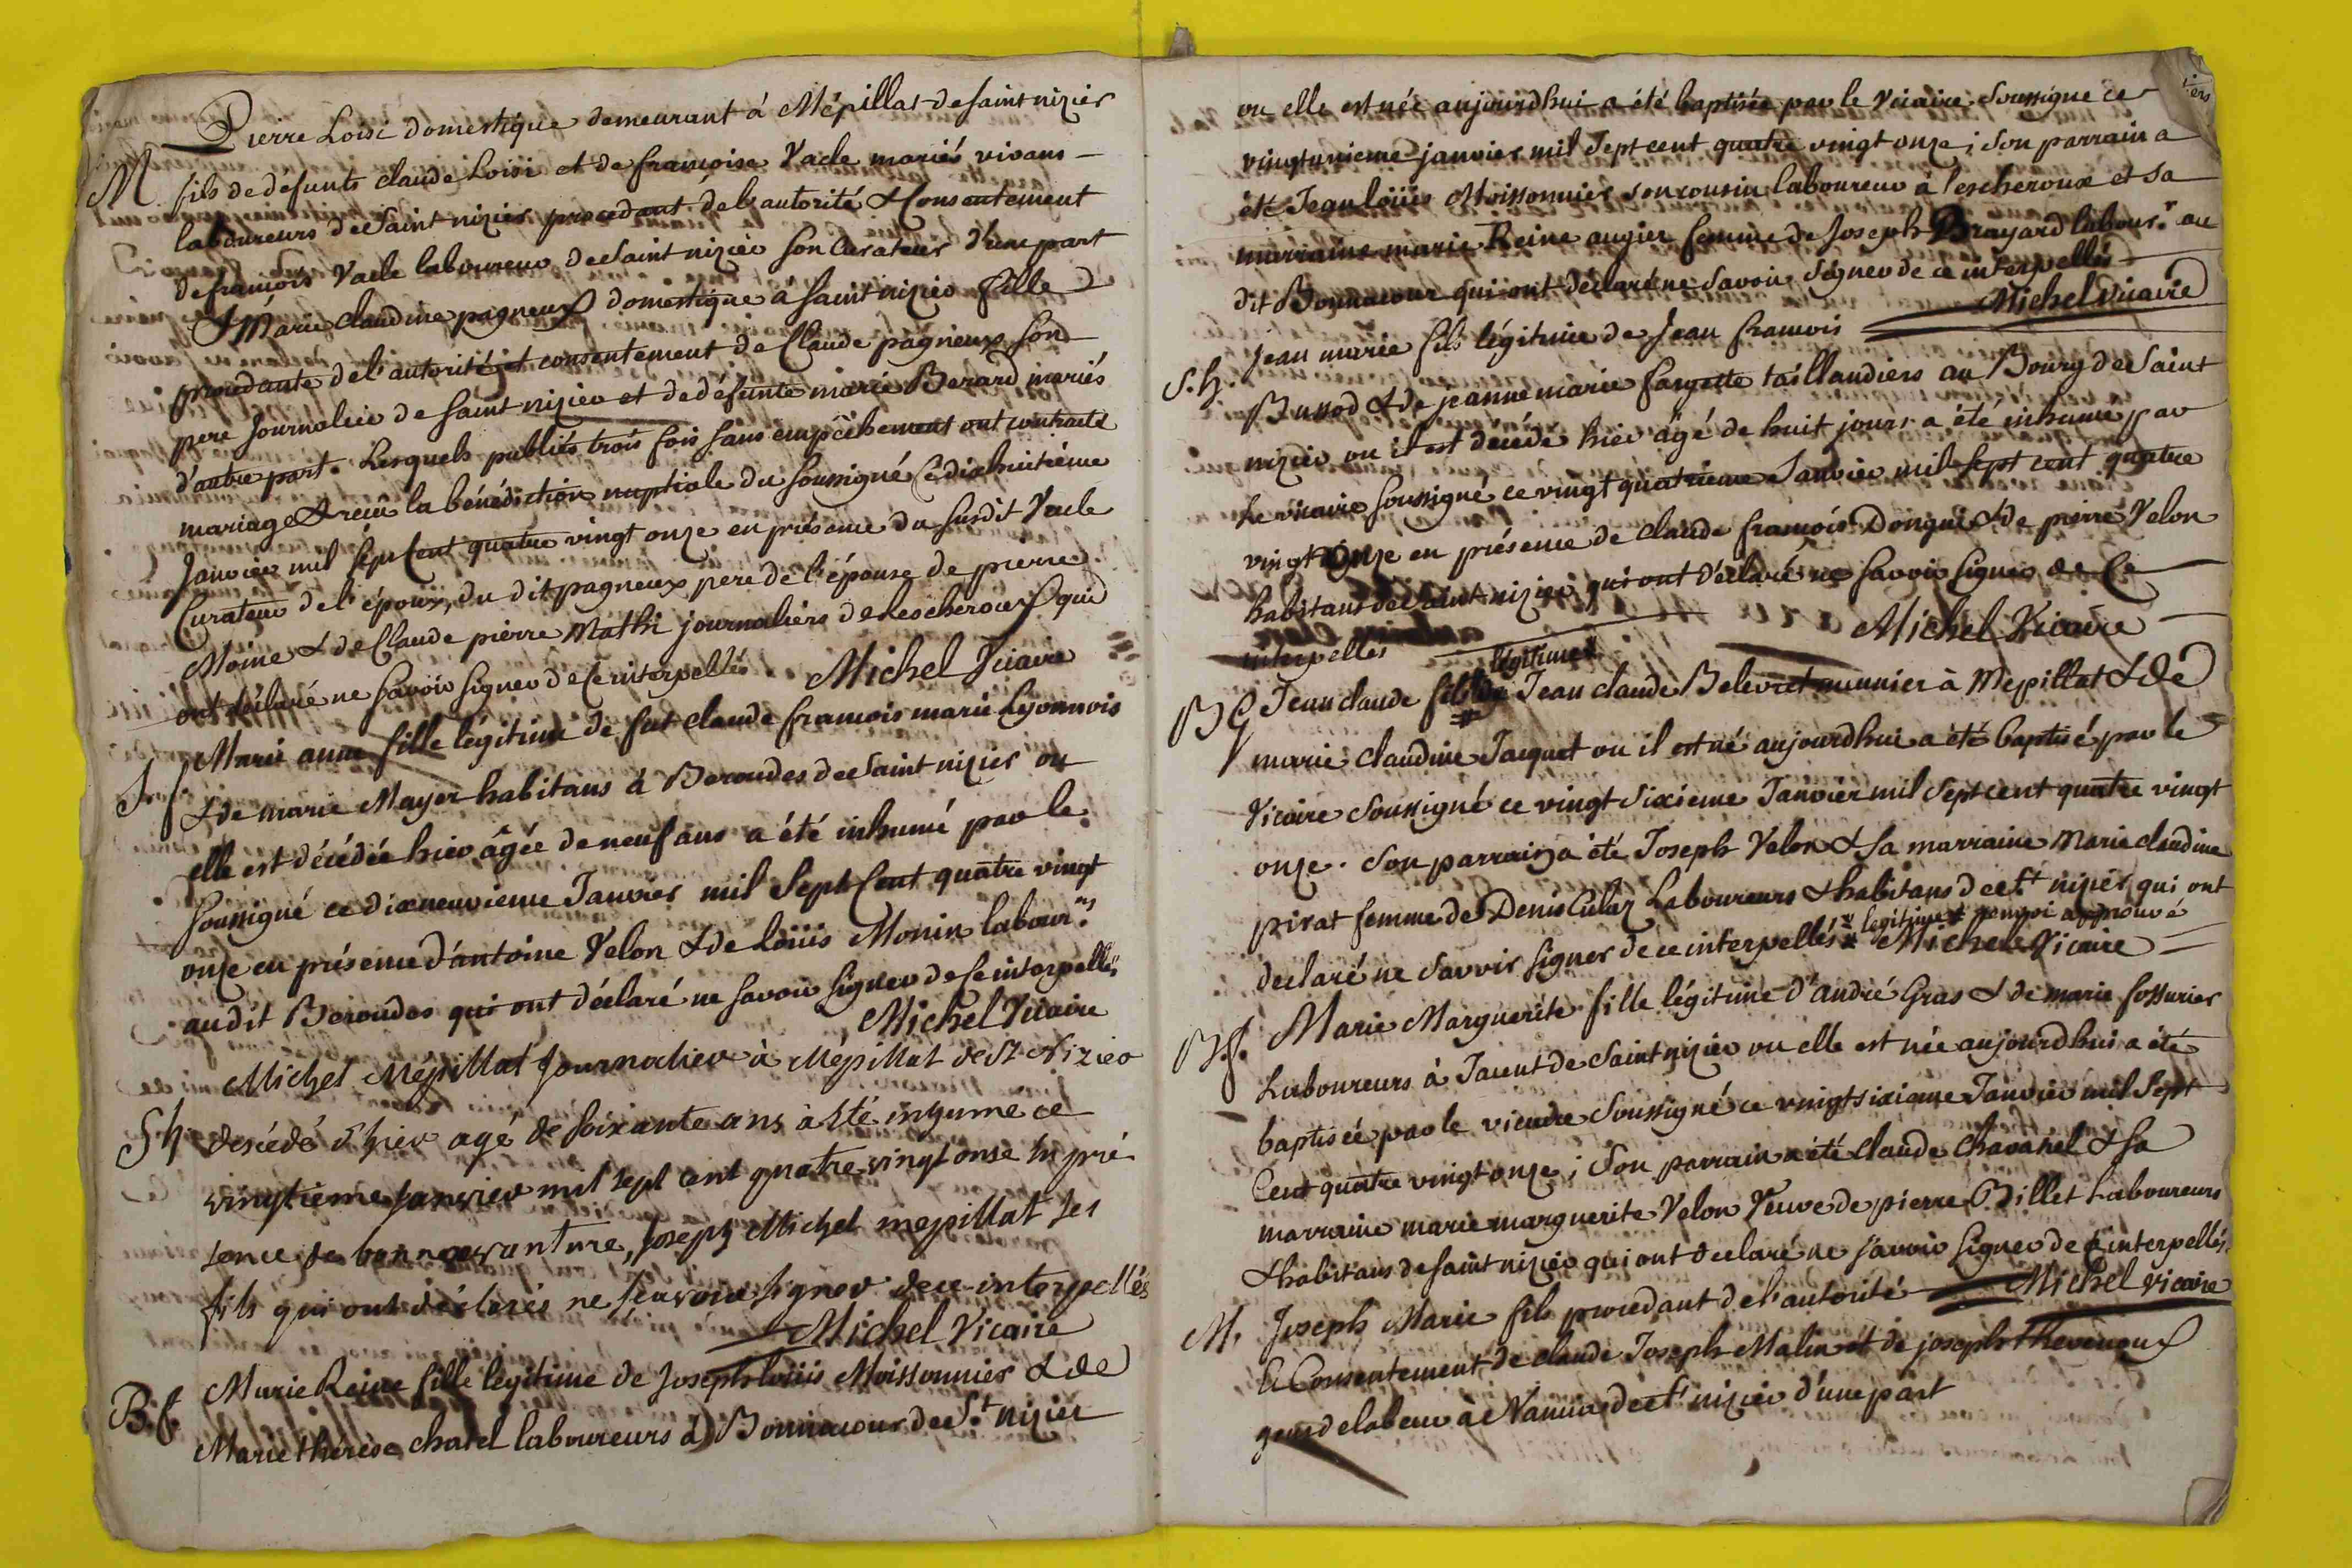 Pierre Loisi domestique demeurant à Mépillat de saint nizier
M. fils de défunts claude Loisi et de françoise Vacle mariés vivans
laboureurs de Saint nizier procedant de l'autorité & Consentement
de françois Vacle laboureur de saint nizier son Curateur d'une part
& Marie claudine pagneux domestique à saint nizier fille
procedante de l'autorité et consentement de Claude pagneux son
pere Journalier de saint nizier et de défunte marie Berard mariés
d'autre part. Lesquels publiés trois fois sans empêchement ont contracté
mariage & reçû la bénédiction nuptiale du soussigné Ce dixhuitième
Janvier mil sept Cent quatre vingt onze en présence du susdit Vacle
Curateur de l'époux, du dit pagneux pere de l'épouse de pierre
Moine & de Claude pierre Mathi journaliers de Lescheroux qui
ont déclaré ne savoir signer de Ce interpellés Michel Vicaire
Marie anne fille légitime de fut claude françois marie Lyonnois
S.f. & de marie Mayer habitans à Beroudes de Saint nizier ou
elle est décédée hier âgée de neuf ans a été inhumé par le
soussigné ce dixneuvieme Janvier mil Sept Cent quatre vingt
onze en présence d'antoine Velon & de Loüis Monin labour.rs
audit Beroudes qui ont déclaré ne savoir signer de Ce interpellés
Michel Vicaire
Michel Mépillat Journalier à Mépillat de St Nizier
S h. desédé d'hier agé de soixante ans à Eté inhume ce
vingtieme Janvier mil sept cent quatre vingt onse In pré
sence de bonnavanture, Joseph Michel mepillat ses
fils qui ont déclarés ne scavoir signer de ce interpellés
Michel Vicaire
Marie Reine fille légitime de Joseph loüis Moissonnier & de
B.f. Marie thérèse chatel laboureurs à Bonnacour de St nizier
ou elle est née aujourdhui a été baptisée par le Vicaire Soussigné ce
vingtunieme janvier mil Sept cent quatre vingt onze ; Son parrain a
été Jean loüis Moissonnier son cousin laboureur à lescheroux et sa
marraine marie Reine augier femme de Joseph Brayard labour.r au
dit Bonnacour qui ont déclaré ne Savoir Signer de ce interpellés
Michel Vicaire
Jean marie fils légitime de Jean françois
S.h. Bussod & de jeanne marie fargette taillandiers au Bourg de Saint
nizier ou il est decédé hier âgé de huit jours a été inhumé par
Le vicaire soussigné ce vingt quatrieme Janvier mil sept cent quatre
vingt Onze en présence de claude françois Donguin & de pierre Velon
habitans de saint nizier qui ont déclaré ne savoir signer de Ce
interpellés
Michel Vicaire
légitime #
B G Jean claude fils de Jean claude Belevret munnier à Mepillat & de
marie claudine Jacquet ou il est né aujourdhui a été baptisé par le
Vicaire Soussigné ce vingt Sixieme Janvier mil Sept cent quatre vingt
onze. Son parrain a été Joseph Velon & sa marraine Marie claudine
pirat femme de Denis Culaz Laboureurs & habitans de St nizier qui ont
declaré ne savoir signer de ce interpellés # légitime # renvoi approuvé
Michel Vicaire
B.f. Marie Marguerite fille légitime d'andré Gras & de marie fossurier
Laboureurs à Jacent de Saint nizier ou elle est née aujourdhui a été
baptisée par le vicaire Soussigné ce vingtsixieme Janvier mil Sept
Cent quatre vingt onze ; Son parrain a été claude Chavanel & sa
marraine marie marguerite Velon Veuve de pierre Billet Laboureurs
& habitans de saint nizier qui ont declaré ne savoir signer de Ce interpellés
Michel vicaire
M. Joseph Marie fils procedant de l'autorité
& Consentement de claude Joseph Malin et de joseph Thevenoux
gens de labeur à de St nizier d'une part